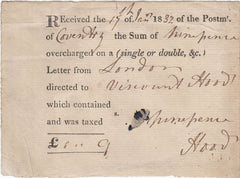 Received the 17th Jan 1832 of the Postmr.
of Coventry the Sum of Ninepence
overcharged on a (single or double, &c.)
Letter from London
directed to Viscount Hood
which contained
and was taxed Ninepence
£ " " 9 Hood